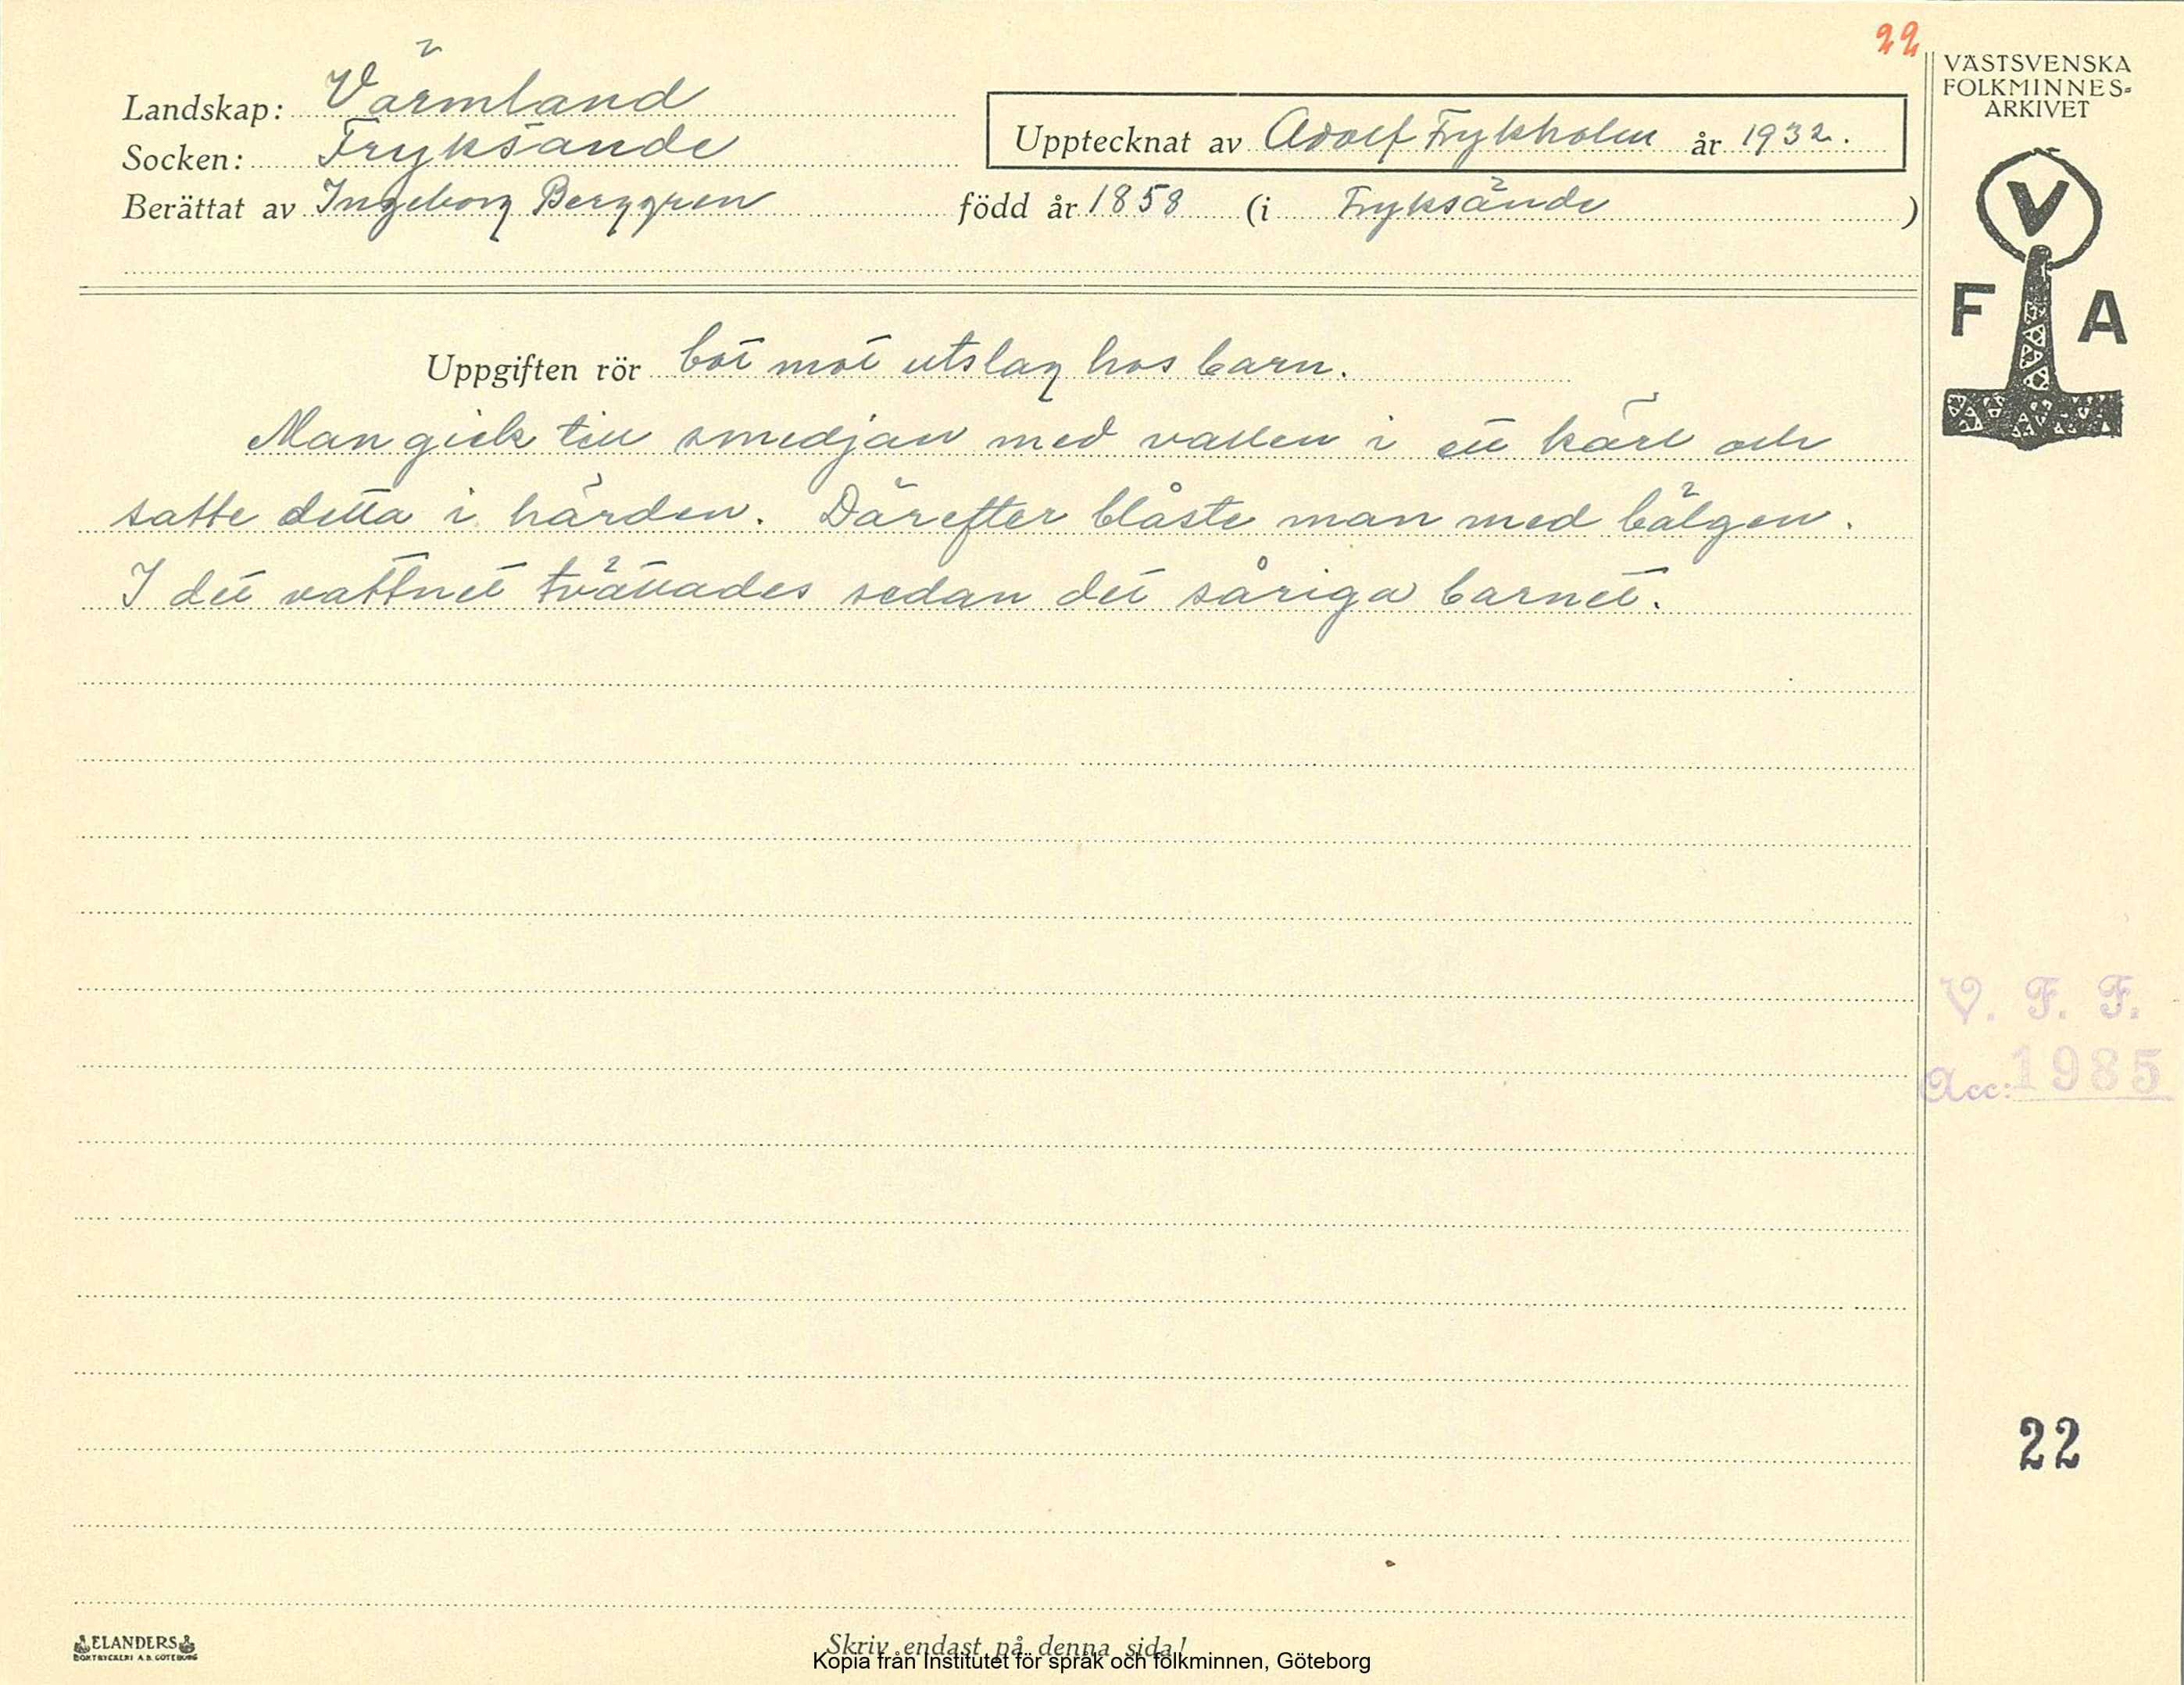 22
VÄSTSVENSKA
FOLKMINNES-
ARKIVET
Landskap: Värmland
Socken: Fryksände
Upptecknat av Adolf Frykholm år 1932.
Berättat av Ingeborg Berggren född år 1858 (i Fryksände)
V
F A
Uppgiften rör bot mot utslag hos barn.
Man gick till smedjan med vatten i ett kärl och
satte detta i härden. Därefter blåste man med bälgen.
I det vattnet tvättades sedan det såriga barnet.
V. F. F.
Acc: 1985
22
ELANDERS
BOKTRYCKERI A.B. GÖTEBORG
Skriv endast på denna sida!
Kopia från Institutet för språk och folkminnen, Göteborg